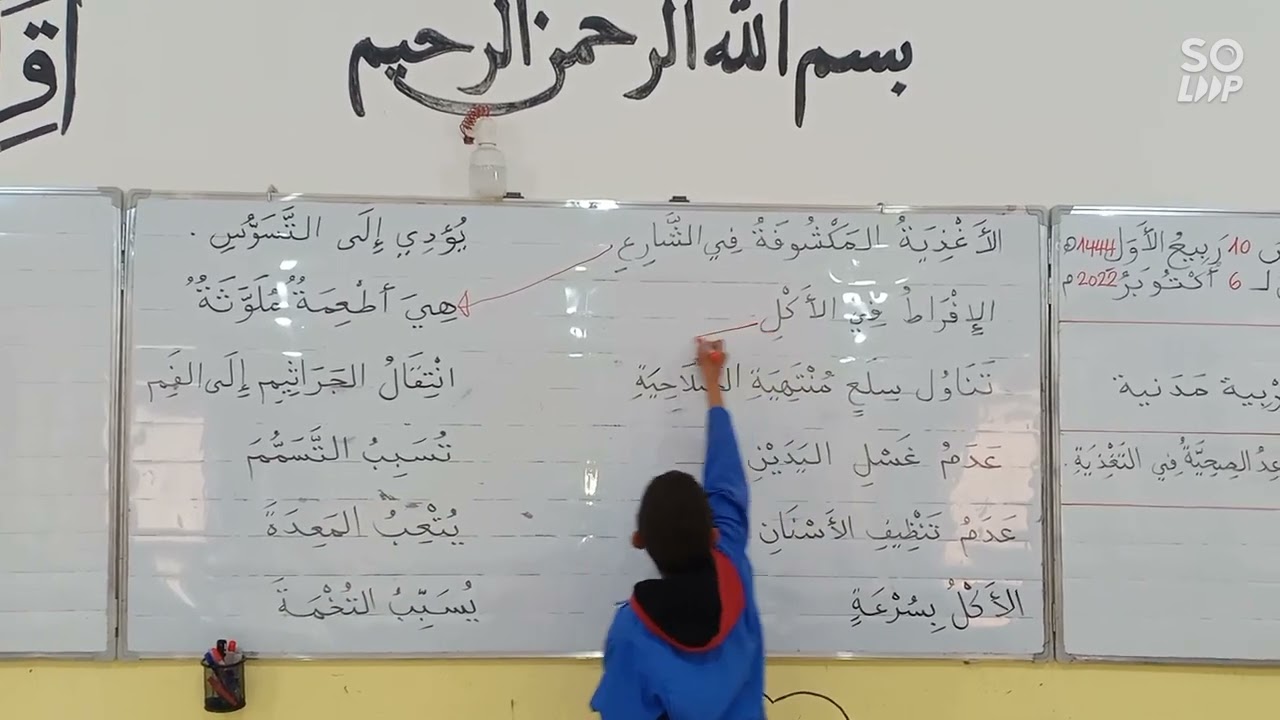 بسم الله الرحمن الرحيم
اَقْرِ
SO
LOOP
10 رَبِيعُ الأَوَّل 1444ه
لـ 6 أُكْتُوبَرْ 2022م
مَدَنية
الصِحِيَّةُ فِي التَغْذِيَةِ.
الأَغْذِيَةُ المَكْشُوفَةُ فِي الشَّارِعِ
الإِفْرَاطُ فِي الأَكْلِ
تَنَاوُل سِلَعٍ مُنْتَهِيَةِ الصَّلَاحِيَةِ
عَدَمُ غَسْلِ اليَدَيْنِ
عَدَمُ تَنْظِيفِ الأَسْنَانِ
الأَكْلُ بِسُرْعَةٍ
يُؤدِي إِلَى التَّسَوُّسِ.
هِيَ أطْعِمَةٌ مُلَوَّثَةٌ
انْتِقَالُ الجَرَاثِيمِ إِلَى الفَمِ
تُسَبِبُ التَّسَمُّمَ
يُتْعِبُ المَعِدَةَ
يُسَبِّبُ التُخْمَةَ